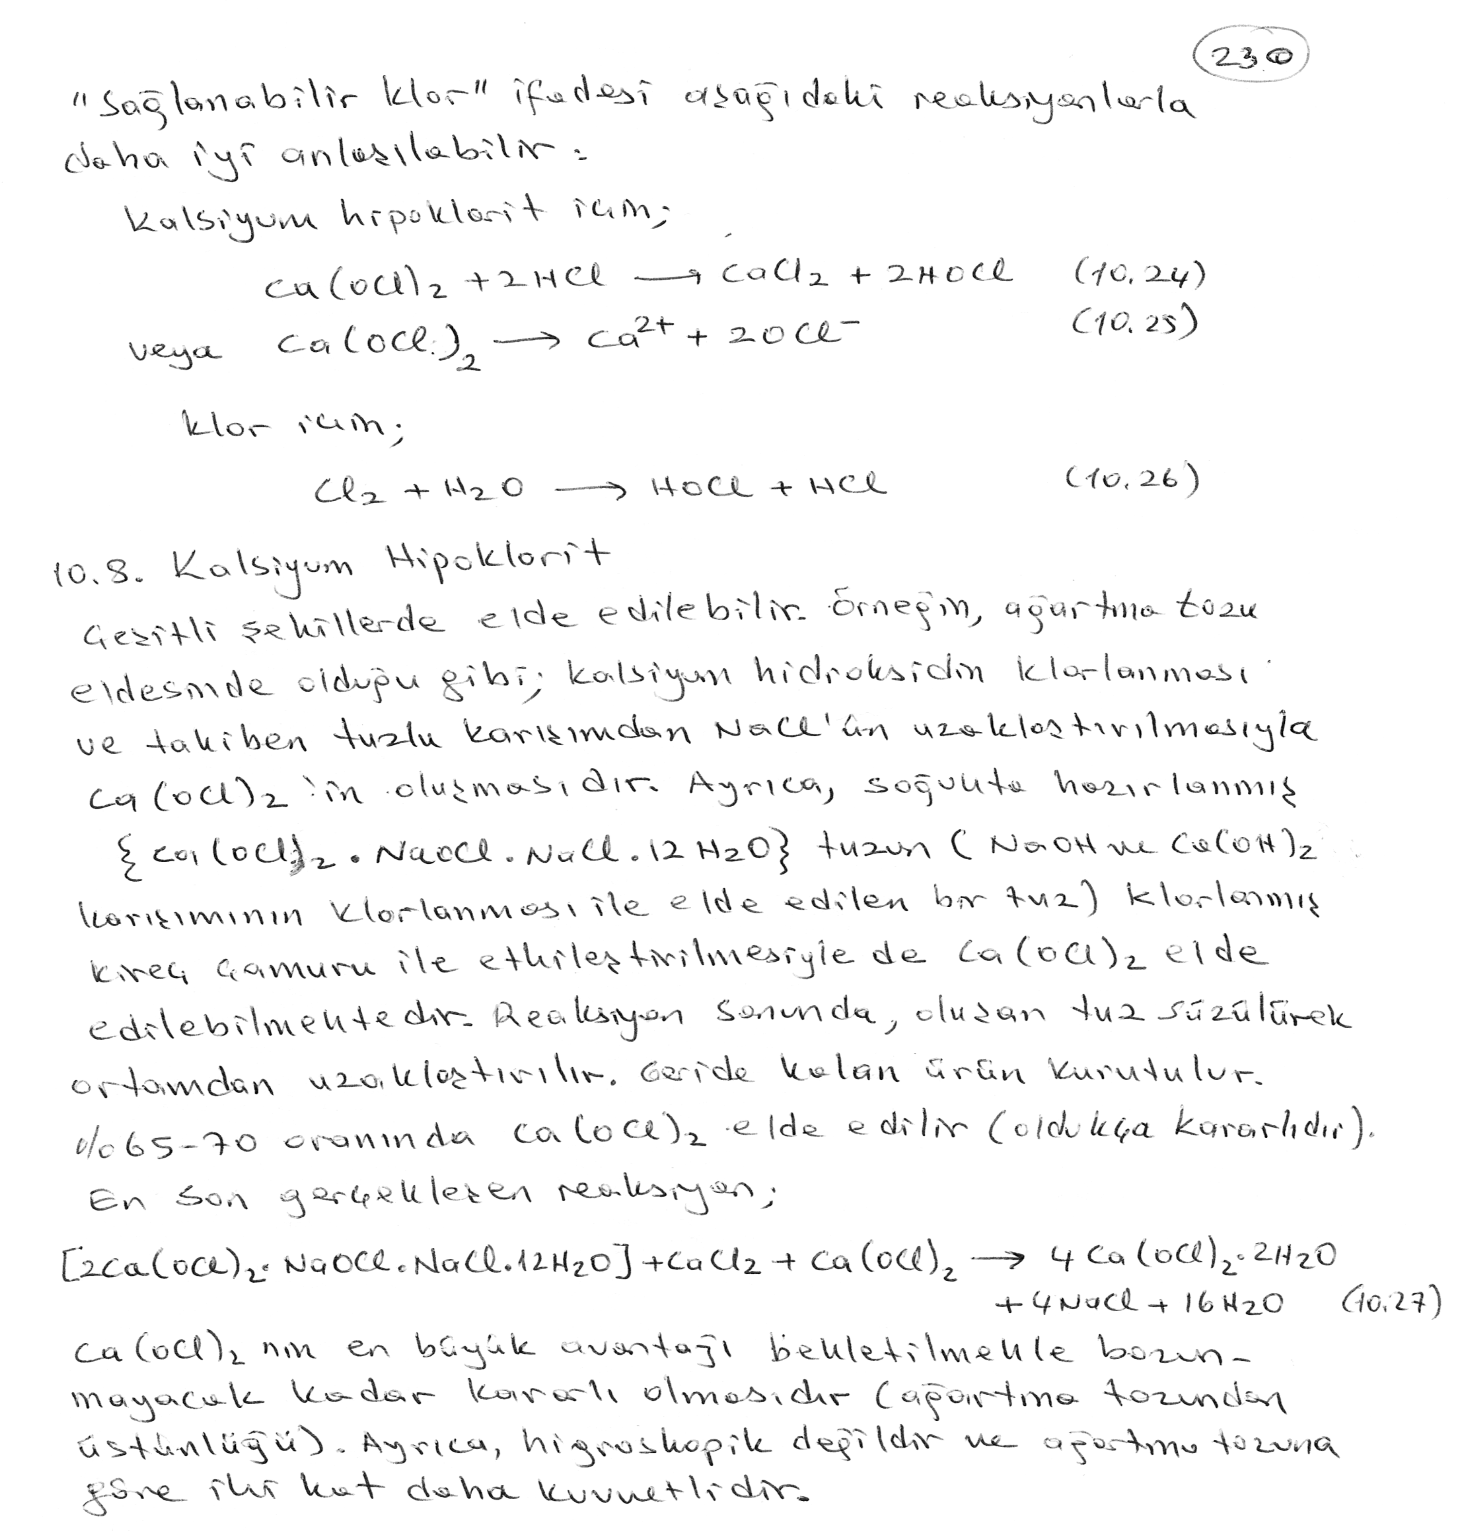 230
"Sağlanabilir klor" ifadesi aşağıdaki reaksiyonlarla
daha iyi anlaşılabilir:
Kalsiyum hipoklorit için;
Ca(OCl)2 + 2HCl → CaCl2 + 2HOCl (10.24)
veya Ca(OCl)2 → Ca2+ + 2OCl- (10.25)
klor için;
Cl2 + H2O → HOCl + HCl (10.26)
10.8. Kalsiyum Hipoklorit
Çeşitli şekillerde elde edilebilir. Örneğin, ağartma tozu
eldesinde olduğu gibi; kalsiyum hidroksidin klorlanması
ve takiben tuzlu karışımdan NaCl'ün uzaklaştırılmasıyla
Ca(OCl)2 'in oluşmasıdır. Ayrıca, soğukta hazırlanmış
{Ca(OCl)2 . NaOCl . NaCl . 12 H2O} tuzun (NaOH ve Ca(OH)2
karışımının klorlanması ile elde edilen bir tuz) klorlanmış
kireç çamuru ile etkileştirilmesiyle de Ca(OCl)2 elde
edilebilmektedir. Reaksiyon sonunda, oluşan tuz süzülürek
ortamdan uzaklaştırılır. Geride kalan ürün kurutulur.
%65-70 oranında Ca(OCl)2 elde edilir (oldukça kararlıdır).
En son gerçekleşen reaksiyon;
[2Ca(OCl)2. NaOCl. NaCl.12H2O] + CaCl2 + Ca(OCl)2 → 4 Ca(OCl)2.2H2O
+ 4NaCl + 16 H2O (10.27)
Ca(OCl)2 nin en büyük avantajı bekletilmekle bozun-
mayacak kadar kararlı olmasıdır (ağartma tozundan
üstünlüğü). Ayrıca, higroskopik değildir ve ağartma tozuna
göre iki kat daha kuvvetlidir.